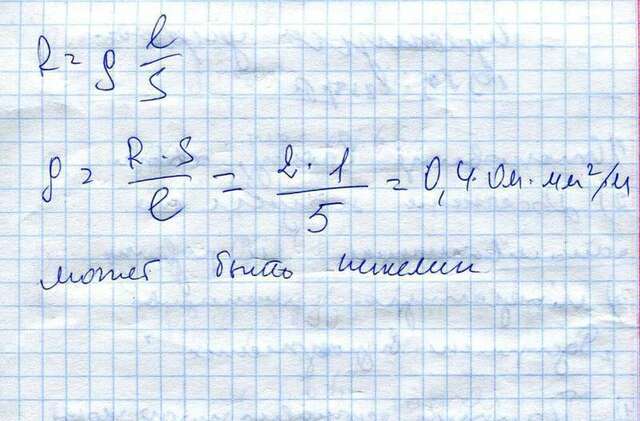 R = ρ l/S
ρ = R · S / l = 2 · 1 / 5 = 0,4 · Ом · мм²/м
может быть никелин